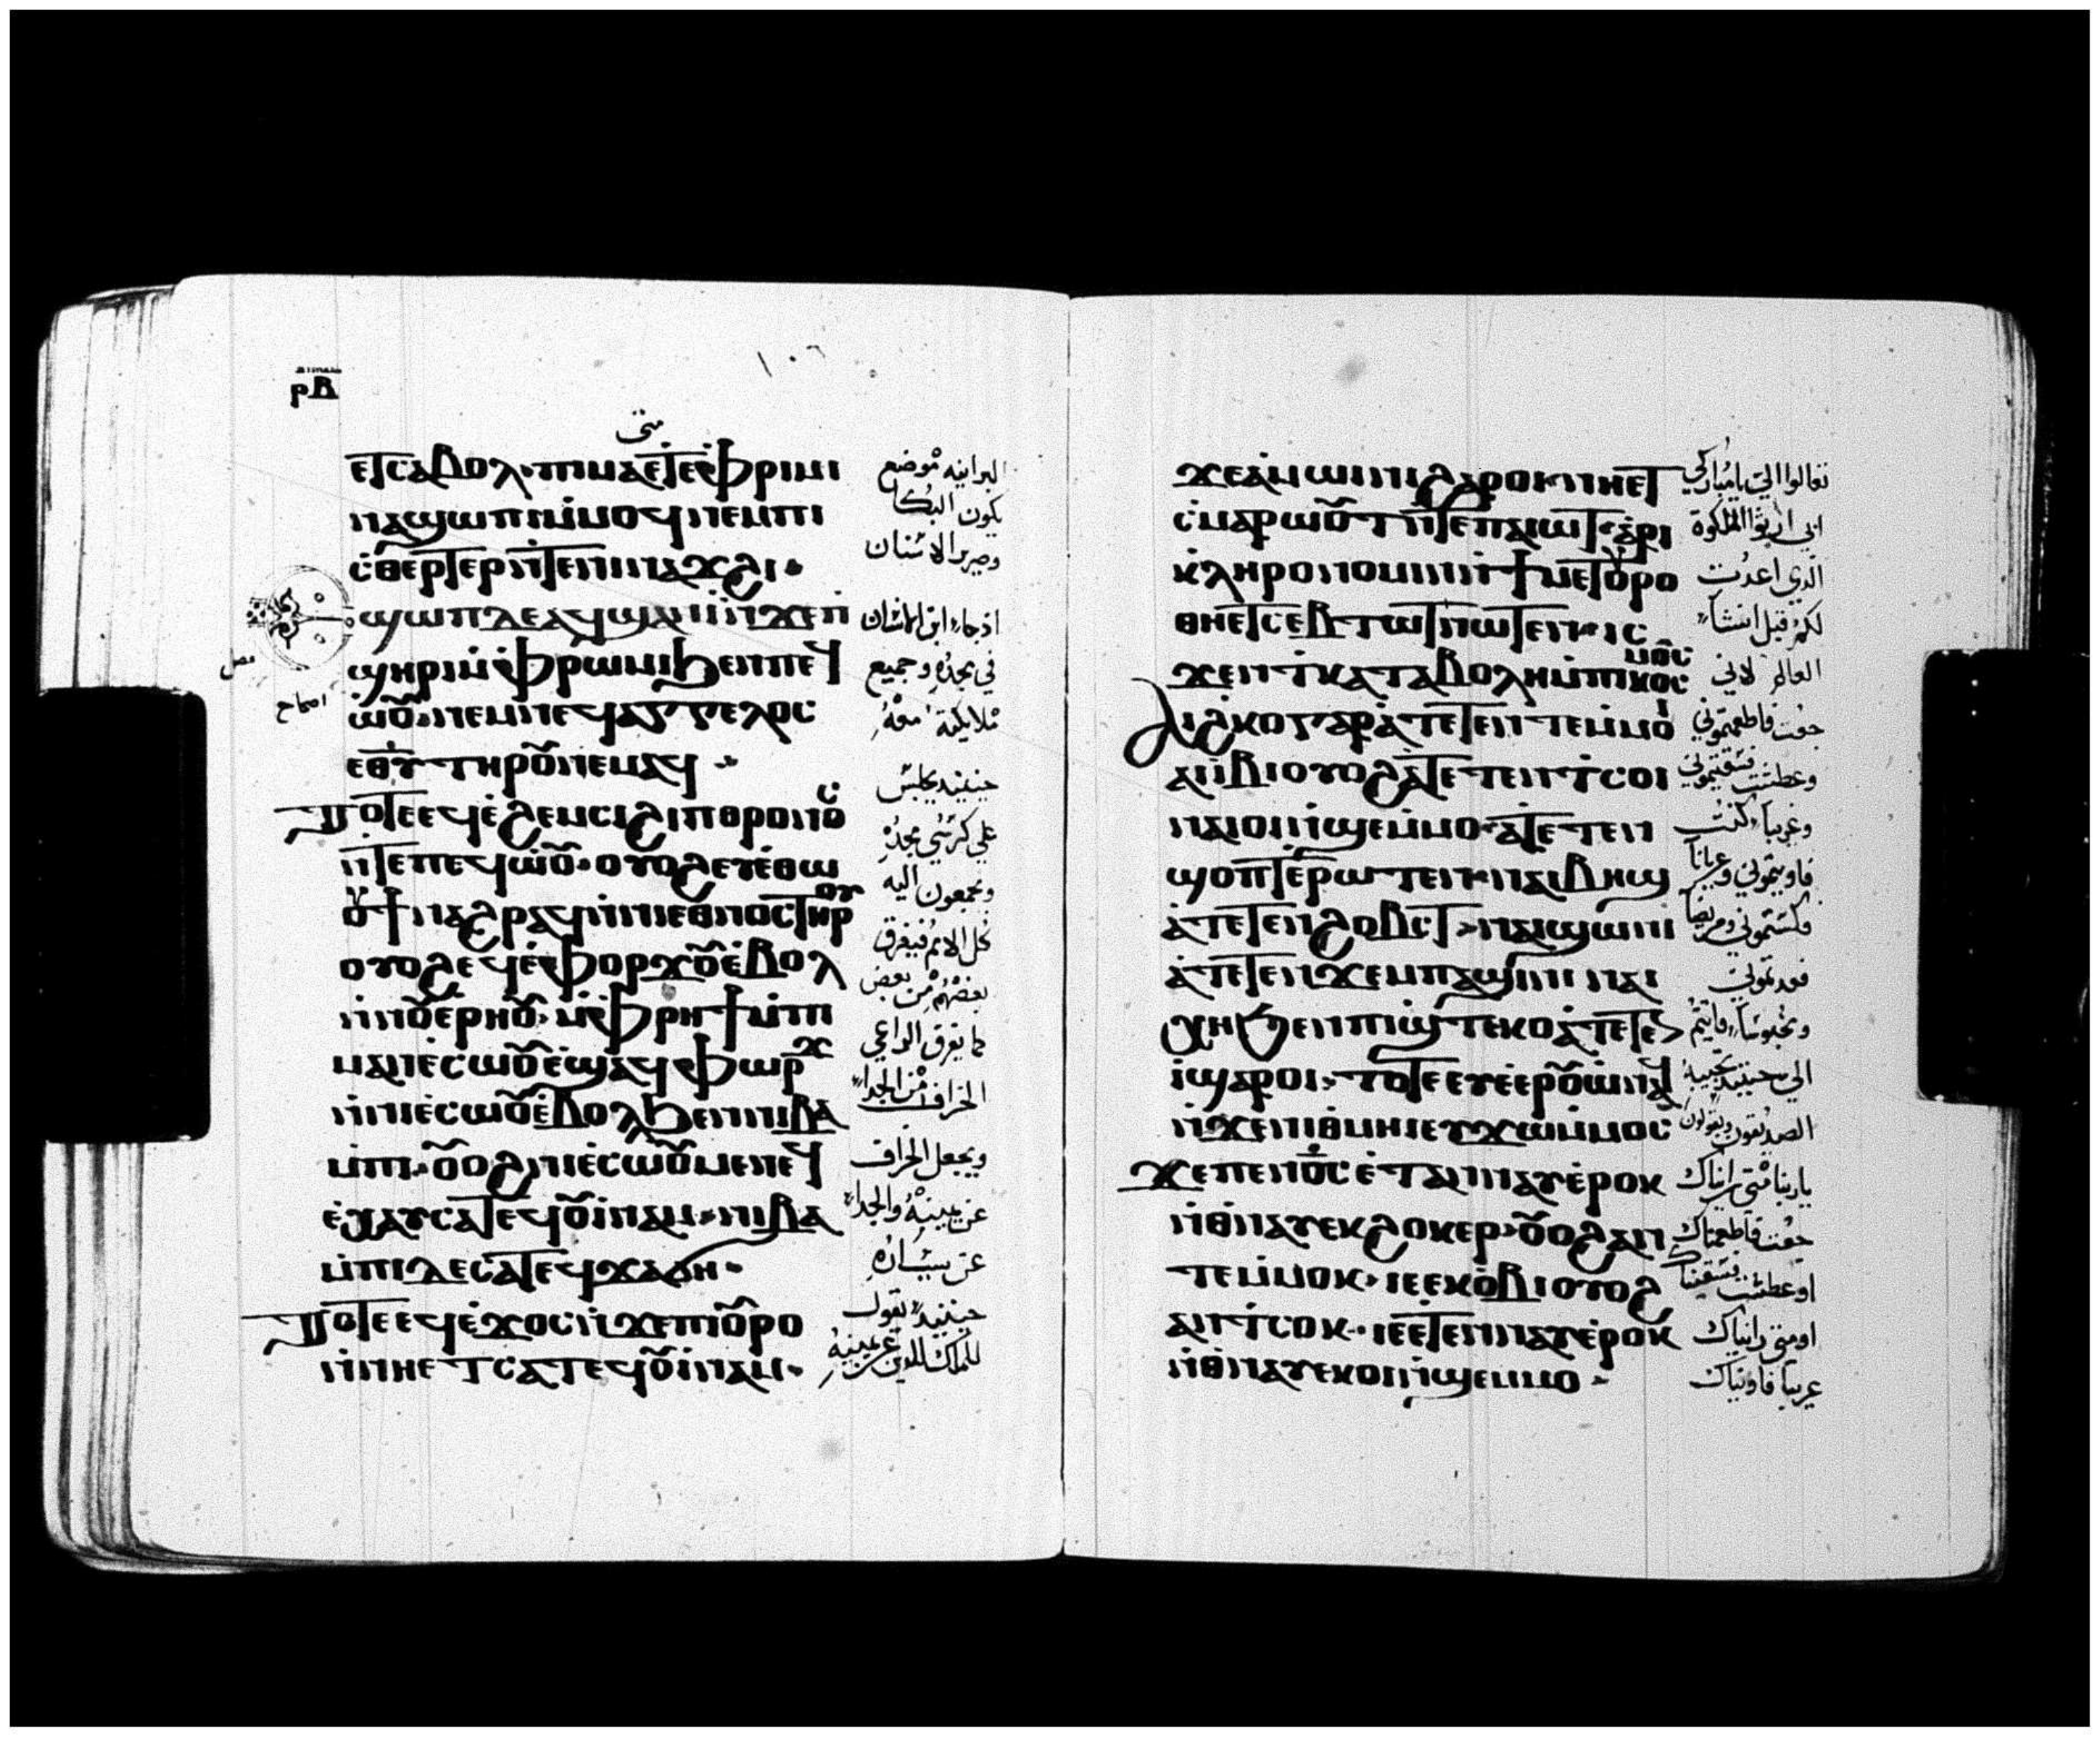 ⲣⲃ
١٠٢
متى
ⲉⲧⲥⲁⲃⲟⲗ· ⲡⲓⲙⲁ ⲉⲧⲉ ⲫⲣⲓⲙⲓ
ⲛⲁϣⲱⲡⲓ ⲙ̇ⲙⲟϥ ⲛⲉⲙ ⲡⲓ
ⲥ̇ⲑⲉⲣⲧⲉⲣ ⲛ̇ⲧⲉ ⲛⲓⲛⲁϫϩⲓ·
ϣⲱⲡ ⲇⲉ ⲁϥϣⲁⲛⲓ̇ ⲛ̇ϫⲉ ⲡ̇
ϣⲏⲣⲓ ⲙ̇ⲫⲣⲱⲙⲓ ϧⲉⲛ ⲡⲉϥ
ⲱ̇ⲟ̅ⲩ ⲛⲉⲙ ⲛⲉϥⲁⲅⲅⲉⲗⲟⲥ
ⲉⲑⲩ ⲧⲏⲣⲟⲩ ⲛⲉⲙⲁϥ·
ⲧⲟⲧⲉ ⲉϥⲉ̇ϩⲉⲙⲥⲓ ϩⲓ ⲡⲑⲣⲟⲛⲟⲥ
ⲛ̇ⲧⲉ ⲡⲉϥⲱ̇ⲟⲩ· ⲟⲩⲟϩ ⲉⲩⲉ̇ⲑⲱ
ⲟⲩϯ ⲛⲁϩⲣⲁϥ ⲛ̇ⲛⲓⲉⲑⲛⲟⲥ ⲧⲏⲣⲟⲩ
ⲟⲩⲟϩ ⲉϥⲉ̇ⲫⲟⲣϫⲟⲩ ⲉ̇ⲃⲟⲗ
ⲛ̇ⲛⲟⲩⲉ̇ⲣⲏⲟⲩ· ⲙ̇ⲫⲣⲏϯ ⲙ̇ⲡⲓ
ⲙⲁⲛⲉ̇ⲥⲱⲟⲩ ⲉ̇ϣⲁϥⲫⲱⲣϫ
ⲛ̇ⲛⲓⲉ̇ⲥⲱⲟⲩ ⲉ̇ⲃⲟⲗ ϧⲉⲛ ⲛⲓⲃⲁ
ⲙ̇ⲡⲓ· ⲟⲩⲟϩ ⲛⲓⲉ̇ⲥⲱⲟⲩ ⲙⲉⲛ ⲉϥ
ⲉ̇ⲭⲁⲩ ⲥⲁⲧⲉϥⲟⲩⲓ̇ⲛⲁⲙ· ⲛⲓⲃⲁ
ⲙ̇ⲡⲓ ⲇⲉ ⲥⲁⲧⲉϥϫⲁϭⲏ·
ⲧⲟⲧⲉ ⲉϥⲉ̇ϫⲟⲥ ⲛ̇ϫⲉ ⲡⲓⲟⲩⲣⲟ
ⲛ̇ⲛⲏ ⲉⲧⲥⲁⲧⲉϥⲟⲩⲓ̇ⲛⲁⲙ·
البرانيه موضع
يكون البكا
وصرير الاسنان
اذ جاء ابن الانسان
في مجده وجميع
ملايكته معه
حينيذ يجلس
علي كرسي مجده
ويجمعون اليه
كل الامم فيفرق
بعضهم من بعض
كما يفرق الراعي
الخراف من الجداء
ويجعل الخراف
عن يمينه والجداء
عن يساره
حينيذ يقول
الملك للذين عن يمينه
ϫⲉ ⲁ̇ⲙⲱⲓⲛⲓ ϩⲁⲣⲟⲓ ⲛⲏ ⲉⲧ
ⲥ̇ⲙⲁⲣⲱⲟⲩⲧ ⲛ̇ⲧⲉ ⲡⲁⲓⲱⲧ ⲁ̇ⲣⲓ
ⲕⲗⲏⲣⲟⲛⲟⲙⲓⲛ ⲛ̇ϯⲙⲉⲧⲟⲩⲣⲟ
ⲑⲏ ⲉⲧⲥⲉⲃⲧⲱⲧ ⲛⲱⲧⲉⲛ ⲓⲥ
ϫⲉⲛ ⲧ̇ⲕⲁⲧⲁⲃⲟⲗⲏ ⲙ̇ⲡⲓⲕⲟⲥⲙⲟⲥ
ⲁⲓϩⲕⲟ ⲅⲁⲣ ⲁ̇ⲧⲉⲧⲉⲛⲧⲉⲙⲙⲟⲓ
ⲁⲓⲓ̇ⲃⲓ ⲟⲩⲟϩ ⲁ̇ⲧⲉⲧⲉⲛⲧ̇ⲥⲟⲓ
ⲛⲁⲓⲟⲓ ⲛ̇ϣⲉⲙⲙⲟ ⲁ̇ⲧⲉⲧⲉⲛ
ϣⲟⲡⲧ ⲉ̇ⲣⲱⲧⲉⲛ· ⲛⲁⲓⲃⲏϣ
ⲁ̇ⲧⲉⲧⲉⲛϩⲟⲃⲥⲧ· ⲛⲁⲓϣⲱⲛⲓ
ⲁ̇ⲧⲉⲧⲉⲛϫⲉⲙⲡⲁϣⲓⲛⲓ ⲛⲁⲓ
ⲭⲏ ϧⲉⲛ ⲡⲓϣ̇ⲧⲉⲕⲟ ⲁ̇ⲧⲉⲧⲉⲛ
ⲓ̇ ϣⲁⲣⲟⲓ· ⲧⲟⲧⲉ ⲉⲩⲉ̇ⲉⲣⲟⲩⲱ̇ ⲛⲁϥ
ⲛ̇ϫⲉ ⲛⲓⲑ̇ⲙⲏⲓ ⲉⲩϫⲱ ⲙ̇ⲙⲟⲥ
ϫⲉ ⲡⲉⲛⲟ̅ⲥ̅ ⲉ̇ⲧⲁⲛⲛⲁⲩ ⲉ̇ⲣⲟⲕ
ⲛ̇ⲑⲛⲁⲩ ⲉⲕϩⲟⲕⲉⲣ· ⲟⲩⲟϩ ⲁⲛ
ⲧⲉⲙⲙⲟⲕ· ⲓⲉ ⲉⲕⲟ̇ⲃⲓ ⲟⲩⲟϩ
ⲁⲛⲧ̇ⲥⲟⲕ· ⲓⲉ ⲉ̇ⲧⲉⲛⲛⲁⲩ ⲉ̇ⲣⲟⲕ
ⲛ̇ⲑⲛⲁⲩ ⲉⲕⲟⲓ ⲛ̇ϣⲉⲙⲙⲟ·
تعالوا اليّ يا مباركي
ابي ارثوا الملكوة
الذي اعدت
لكم قبل انشاء
العالم لاني
جعت فاطعمتموني
وعطشت فسقيتموني
وغريبا كنت
فاويتموني وعريانا
فكسيتموني ومريضا
فعدتموني
ومحبوسا فاتيتم
الي حينيذ تجيبه
الصديقون ويقولون
يا ربنا متي رايناك
جعت فاطعمناك
او عطشت فسقيناك
او متي رايناك
غريبا فاويناك